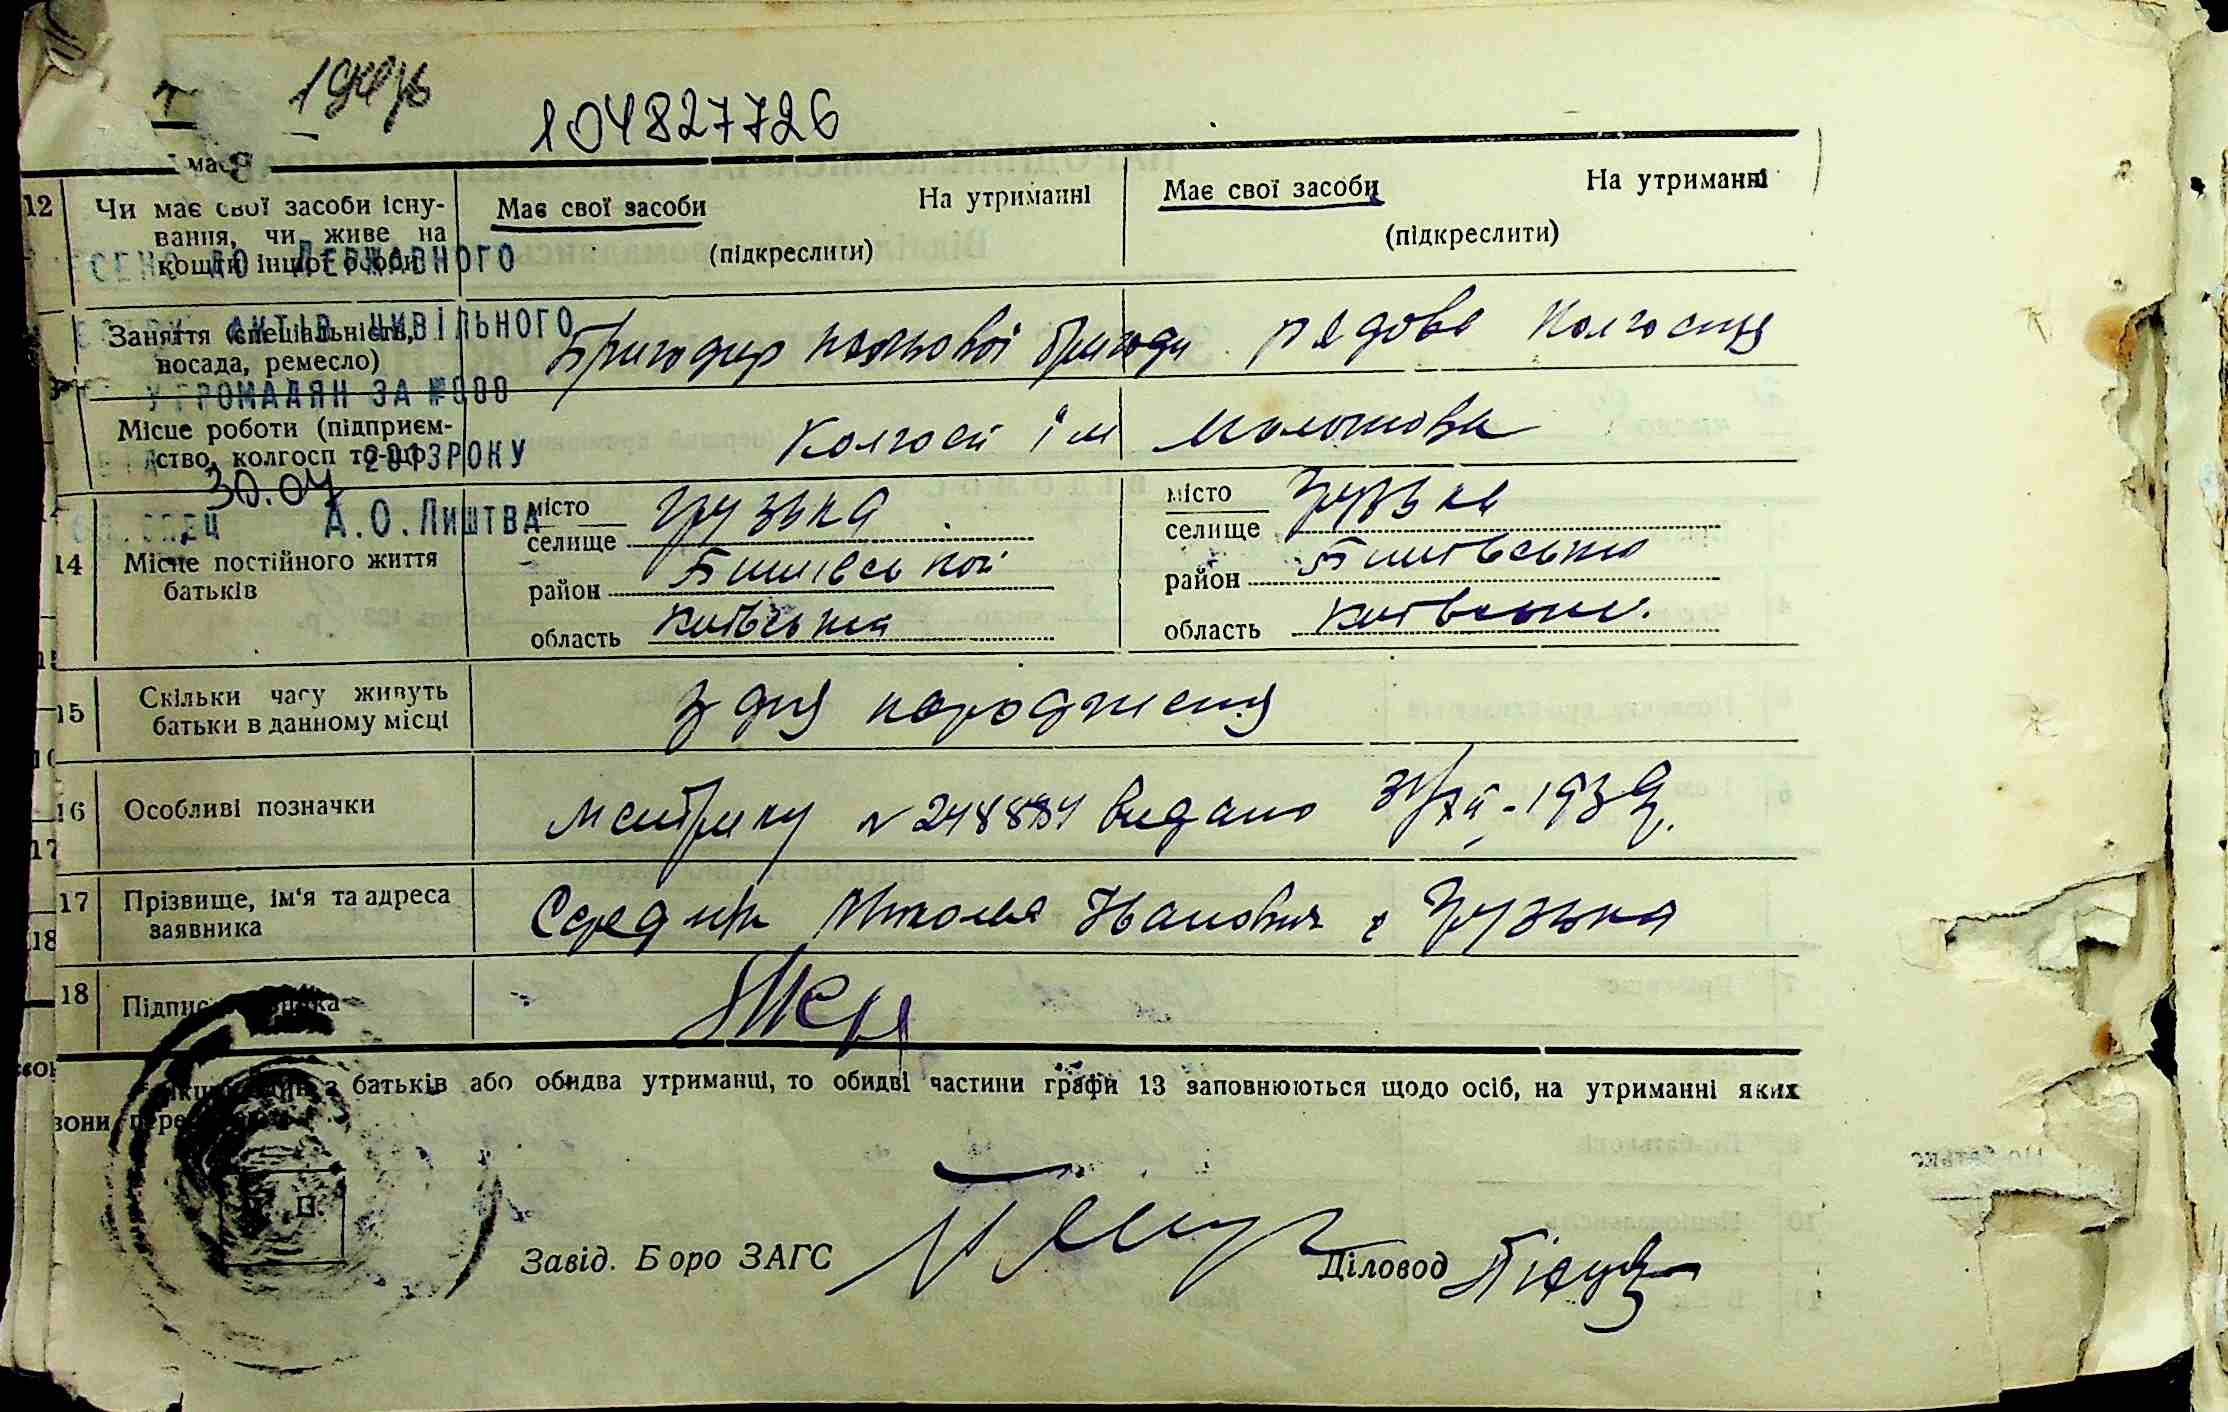 104827726
12 Чи має свої засоби існування, чи живе на кошти іншої особи
Має свої засоби На утриманні
(підкреслити)
Має свої засоби На утриманні
(підкреслити)
ДО ДЕРЖАВНОГО
АКТІВ ЦИВІЛЬНОГО
ГРОМАДЯН ЗА №000
2013 РОКУ
30.04
А.О.ЛИШТВА
Заняття (спеціальність, посада, ремесло)
Бригадир польової бригади
рядова колгоспу
Місце роботи (підприємство, колгосп то-що)
Колгосп ім Молотова
14 Місце постійного життя батьків
місто
селище Грузька
район
область Київська
місто
селище Грузька
район
область
15 Скільки часу живуть батьки в данному місці
З дня народження
16 Особливі позначки
видано 31/XII-1939.
17 Прізвище, ім'я та адреса заявника
Микола Іванович с Грузька
18
з батьків або обидва утриманці, то обидві частини графи 13 заповнюються щодо осіб, на утриманні яких
вони
Завід. Бюро ЗАГС
Діловод